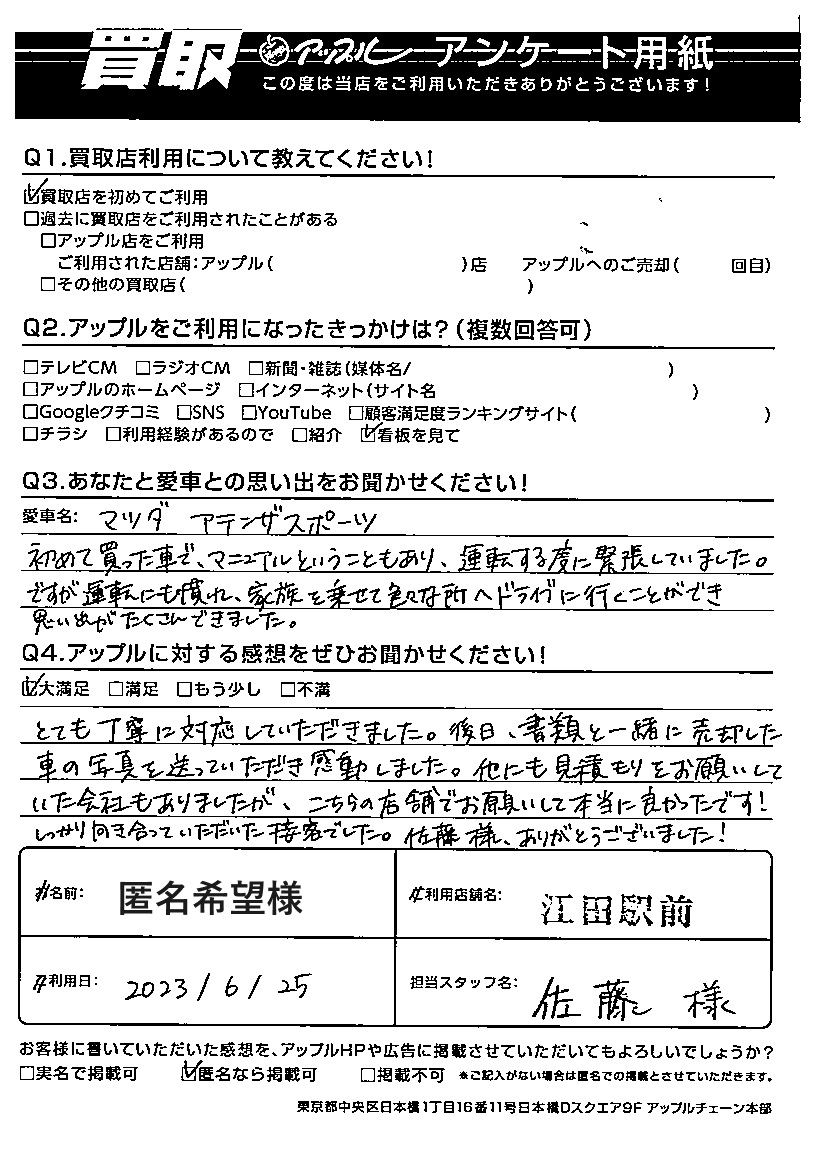 買取 アップル アンケート用紙
この度は当店をご利用いただきありがとうございます!
Q1.買取店利用について教えてください!
☑買取店を初めてご利用
□過去に買取店をご利用されたことがある
□アップル店をご利用
ご利用された店舗:アップル( )店 アップルへのご売却( 回目)
□その他の買取店( )
Q2.アップルをご利用になったきっかけは?(複数回答可)
□テレビCM □ラジオCM □新聞・雑誌(媒体名/ )
□アップルのホームページ □インターネット(サイト名 )
□Googleクチコミ □SNS □YouTube □顧客満足度ランキングサイト( )
□チラシ □利用経験があるので □紹介 ☑看板を見て
Q3.あなたと愛車との思い出をお聞かせください!
愛車名: マツダ アテンザスポーツ
初めて買った車で、マニュアルということもあり、運転する度に緊張していました。
ですが運転にも慣れ、家族を乗せて色々な所へドライブに行くことができ
思い出がたくさんできました。
Q4.アップルに対する感想をぜひお聞かせください!
☑大満足 □満足 □もう少し □不満
とても丁寧に対応していただきました。後日、書類と一緒に売却した
車の写真を送っていただき感動しました。他にも見積もりをお願いして
いた会社もありましたが、こちらの店舗でお願いして本当に良かったです!
しっかり向き合っていただいた接客でした。佐藤様、ありがとうございました!
お名前: 匿名希望様 ご利用店舗名: 江田駅前
ご利用日: 2023/6/25 担当スタッフ名: 佐藤 様
お客様に書いていただいた感想を、アップルHPや広告に掲載させていただいてもよろしいでしょうか?
□実名で掲載可 ☑匿名なら掲載可 □掲載不可 ※ご記入がない場合は匿名での掲載とさせていただきます。
東京都中央区日本橋1丁目16番11号日本橋Dスクエア9F アップルチェーン本部